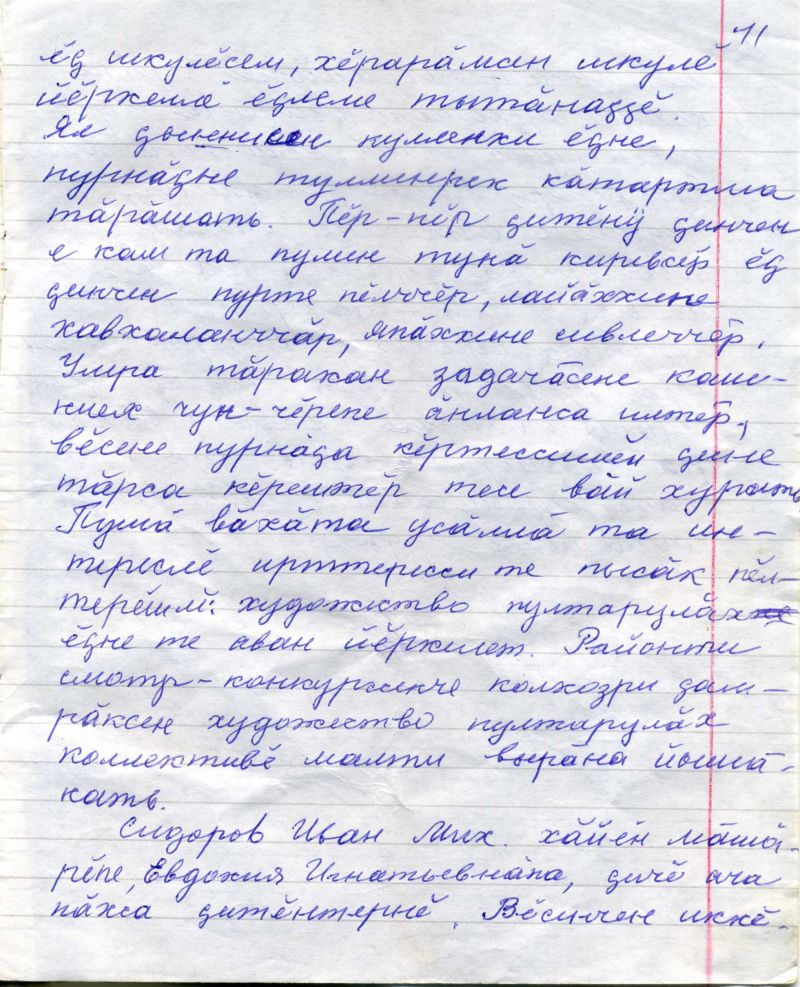 11
ӗҫ шкулӗсем, хӗрарӑмсен шкулӗ
йӗркеллӗ ӗҫлеме тытӑнаҫҫӗ.
Ял ҫыннисен кулленхи ӗҫне,
пурнӑҫне туллинрех кӑтартма
тӑрӑшать. Пӗр-пӗр ҫитӗнӳ ҫинчен
е кам та пулин тунӑ киревсӗр ӗҫ
ҫинчен пурте пӗлччӗр, лайӑххине
хавхаланччӑр, япӑххине сивлеччӗр.
Умра тӑракан задачӑсене каш-
ниех чун-чӗрепе ӑнланса илтӗр,
вӗсене пурнӑҫа кӗртессишӗн ҫине
тӑрса кӗрештӗр тесе вӑй хурать
Пушӑ вӑхӑта усӑллӑ та ин-
тереслӗ ирттересси те пысӑк пӗл-
терӗшлӗ: художество пултарулӑх
ӗҫне те аван йӗркилет. Районти
смотр-конкурсенче колхозри ҫам-
рӑксен художество пултарулӑх
коллективӗ малти вырӑна йышӑ-
кать.
Сидоров Иван Мих. хӑйӗн мӑшӑ-
рӗпе, Евдокия Игнатьевнӑпа, ҫичӗ ача
пӑхса ҫитӗнтернӗ. Вӗсинчен иккӗ-